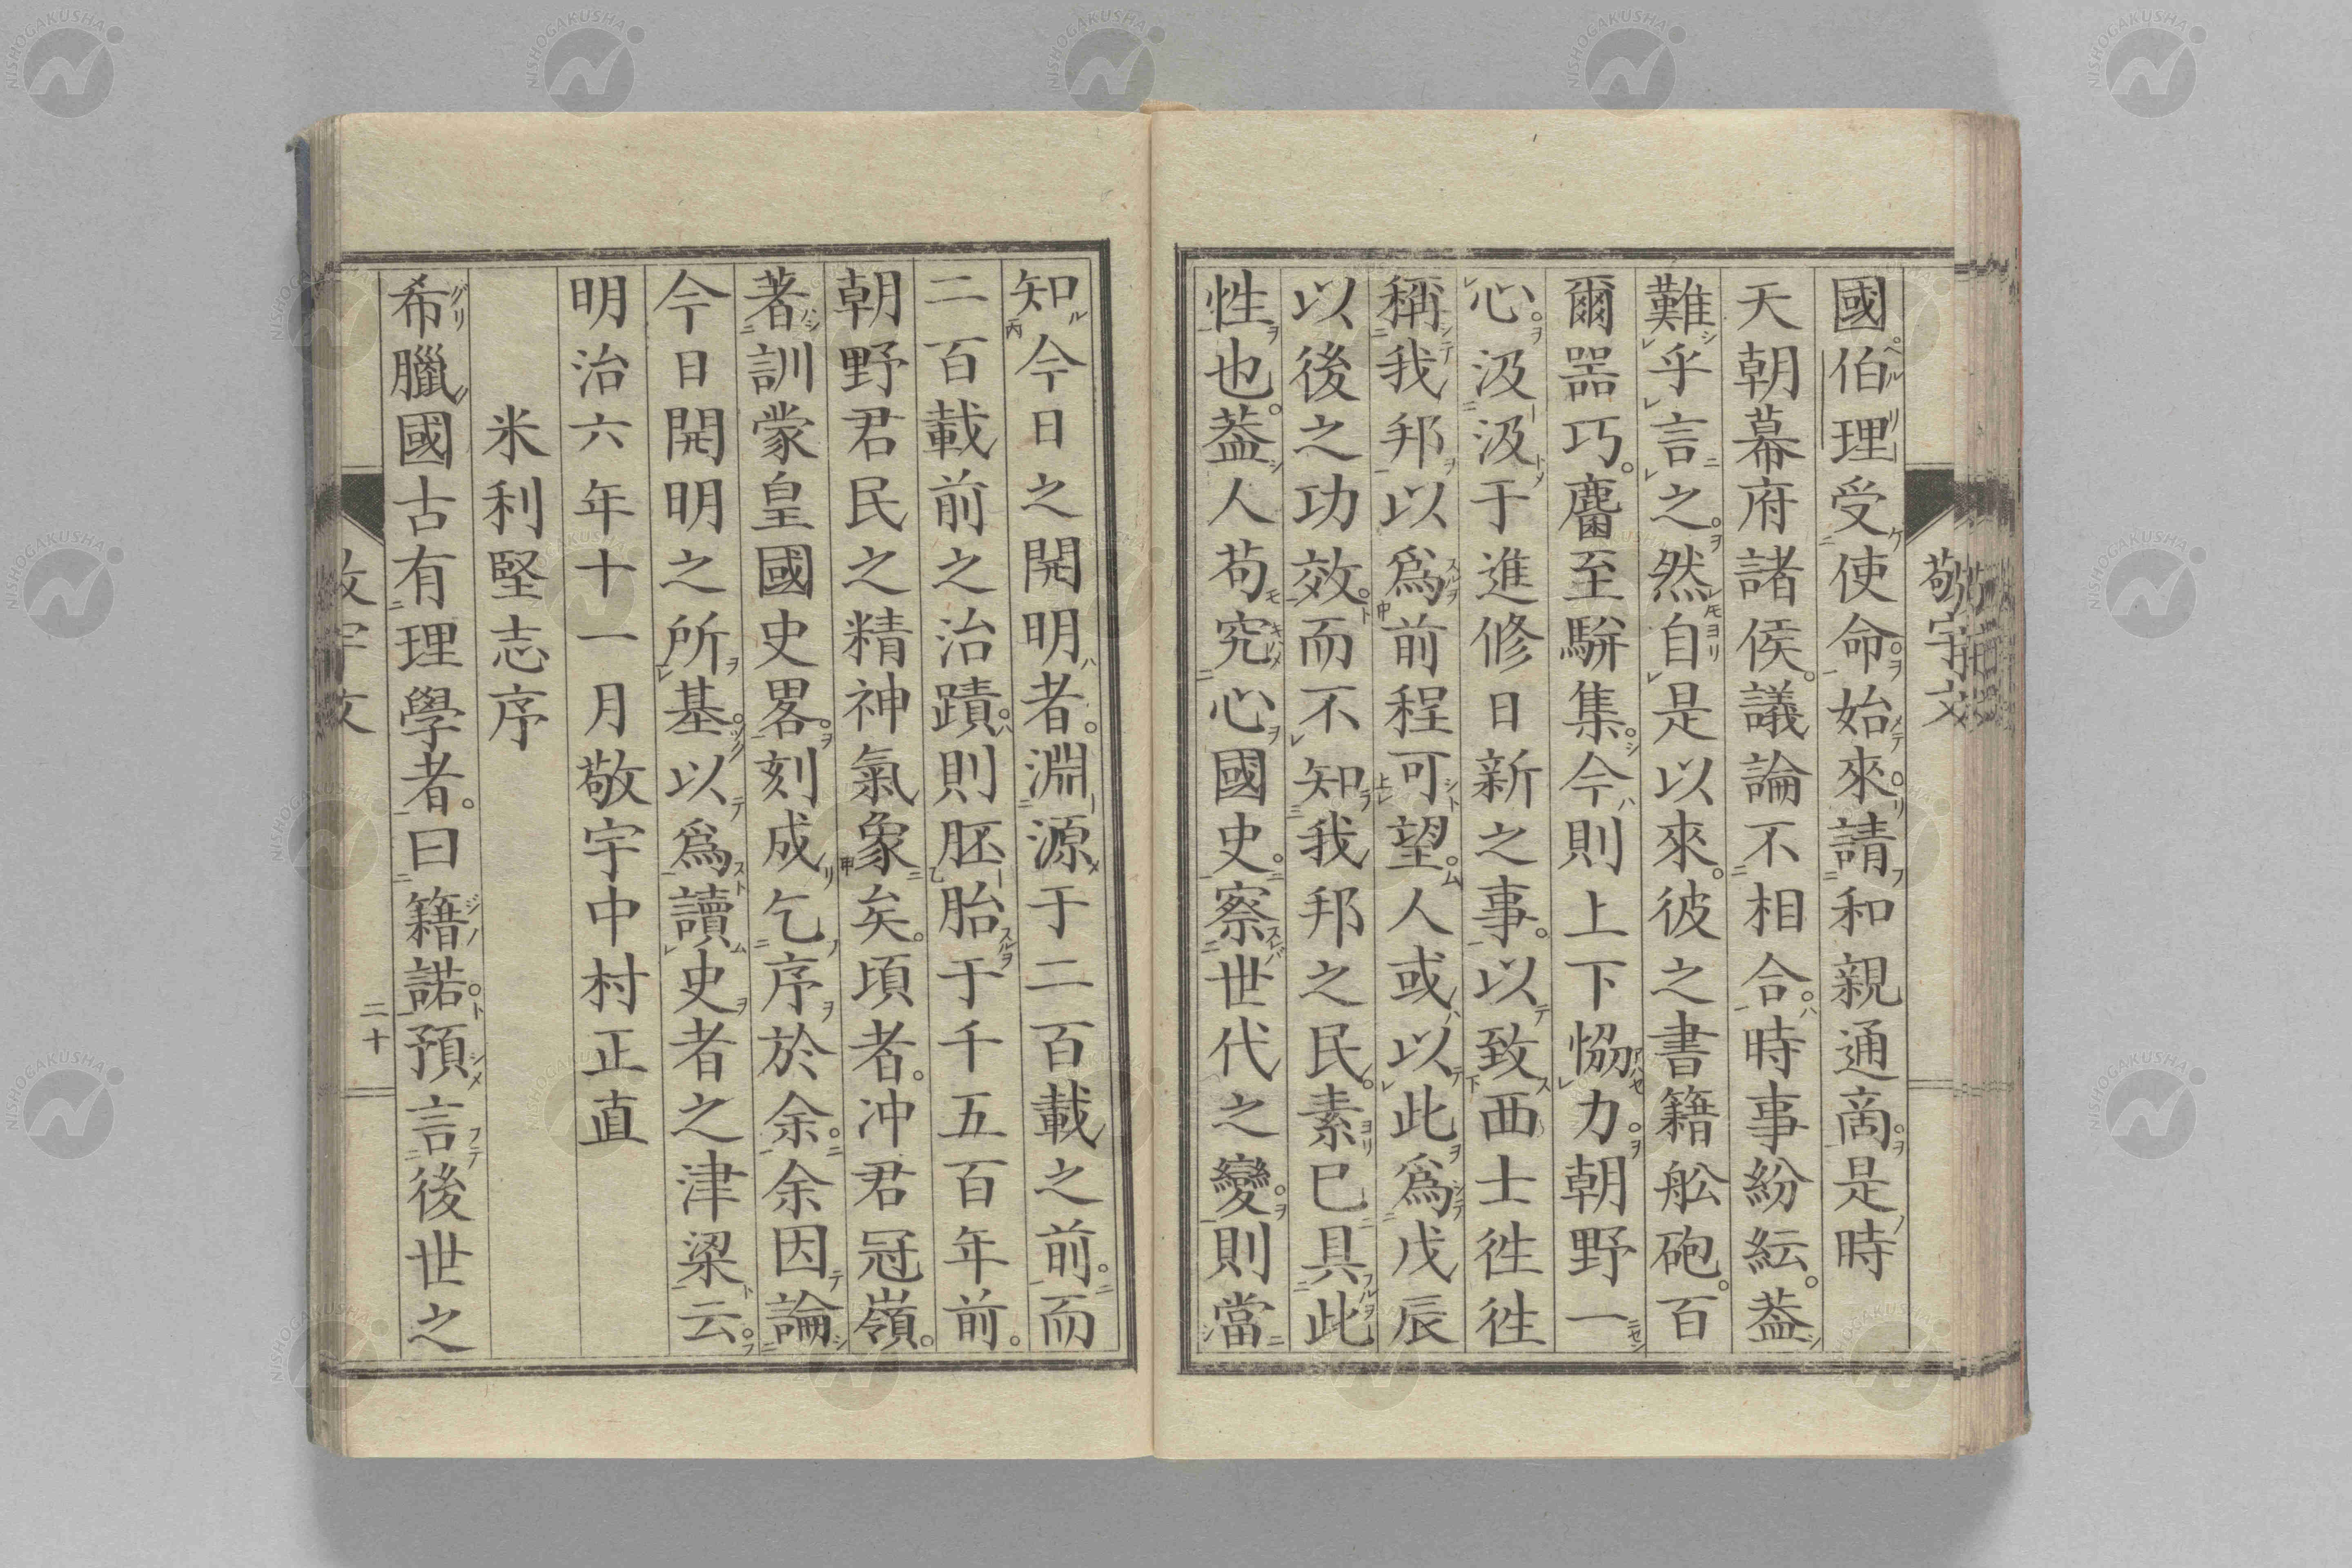 國伯理受使命始來請和親通啇是時
天朝幕府諸侯議論不相合時事紛紜葢
難乎言之然自是以來彼之書籍舩砲百
爾噐巧麕至駢集今則上下恊力朝野一
心汲汲于進修日新之事以致西士徃徃
稱我邦以爲前程可望人或以此爲戊辰
以後之功效而不知我邦之民素已具此
性也葢人苟究心國史察世代之變則當
知今日之開明者淵源于二百載之前而
二百載前之治蹟則胚胎于千五百年前
朝野君民之精神氣象矣頃者冲君冠嶺
著訓蒙皇國史畧刻成乞序於余余因論
今日開明之所基以爲讀史者之津梁云
明治六年十一月敬宇中村正直
米利堅志序
希臘國古有理學者曰籍諾預言後世之
敬宇文
二十
NISHOGAKUSHA